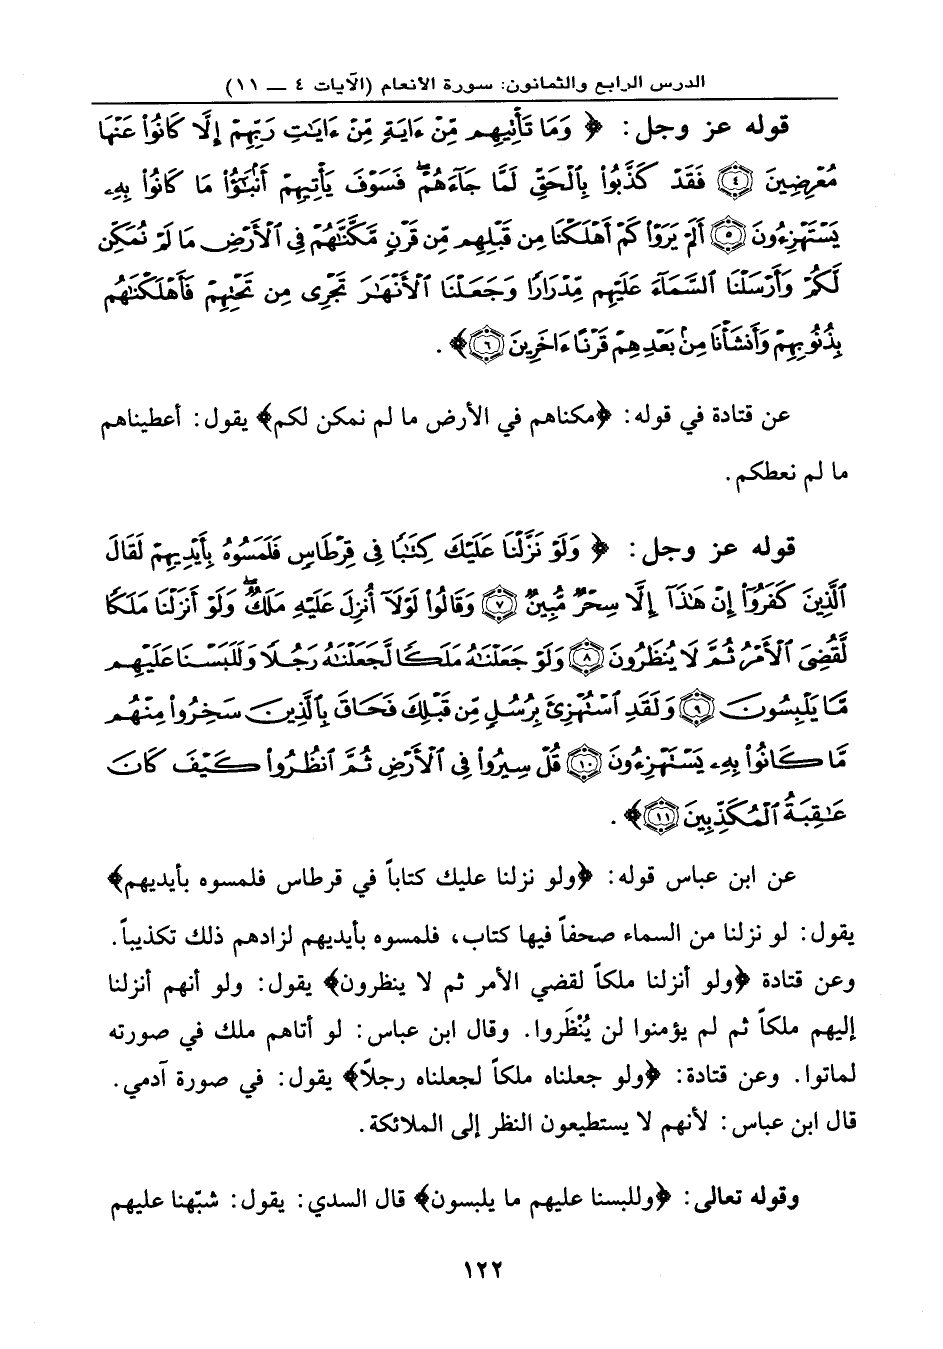 الدرس الرابع والثمانون: سورة الأنعام (الآيات ٤ ــ ١١)
قوله عز وجل: ﴿ وَمَا تَأْتِيهِم مِّنْ ءَايَةٍ مِّنْ ءَايَٰتِ رَبِّهِمْ إِلَّا كَانُوا۟ عَنْهَا
مُعْرِضِينَ ﴿٤﴾ فَقَدْ كَذَّبُوا۟ بِٱلْحَقِّ لَمَّا جَآءَهُمْ ۖ فَسَوْفَ يَأْتِيهِمْ أَنۢبَٰٓؤُا۟ مَا كَانُوا۟ بِهِۦ
يَسْتَهْزِءُونَ ﴿٥﴾ أَلَمْ يَرَوْا۟ كَمْ أَهْلَكْنَا مِن قَبْلِهِم مِّن قَرْنٍ مَّكَّنَّٰهُمْ فِى ٱلْأَرْضِ مَا لَمْ نُمَكِّن
لَّكُمْ وَأَرْسَلْنَا ٱلسَّمَآءَ عَلَيْهِم مِّدْرَارًا وَجَعَلْنَا ٱلْأَنْهَٰرَ تَجْرِى مِن تَحْتِهِمْ فَأَهْلَكْنَٰهُم
بِذُنُوبِهِمْ وَأَنشَأْنَا مِنۢ بَعْدِهِمْ قَرْنًا ءَاخَرِينَ ﴿٦﴾ ﴾ .
عن قتادة في قوله: ﴿مكناهم في الأرض ما لم نمكن لكم﴾ يقول: أعطيناهم
ما لم نعطكم.
قوله عز وجل: ﴿ وَلَوْ نَزَّلْنَا عَلَيْكَ كِتَٰبًا فِى قِرْطَاسٍ فَلَمَسُوهُ بِأَيْدِيهِمْ لَقَالَ
ٱلَّذِينَ كَفَرُوٓا۟ إِنْ هَٰذَآ إِلَّا سِحْرٌ مُّبِينٌ ﴿٧﴾ وَقَالُوا۟ لَوْلَآ أُنزِلَ عَلَيْهِ مَلَكٌ ۖ وَلَوْ أَنزَلْنَا مَلَكًا
لَّقُضِىَ ٱلْأَمْرُ ثُمَّ لَا يُنظَرُونَ ﴿٨﴾ وَلَوْ جَعَلْنَٰهُ مَلَكًا لَّجَعَلْنَٰهُ رَجُلًا وَلَلَبَسْنَا عَلَيْهِم
مَّا يَلْبِسُونَ ﴿٩﴾ وَلَقَدِ ٱسْتُهْزِئَ بِرُسُلٍ مِّن قَبْلِكَ فَحَاقَ بِٱلَّذِينَ سَخِرُوا۟ مِنْهُم
مَّا كَانُوا۟ بِهِۦ يَسْتَهْزِءُونَ ﴿١٠﴾ قُلْ سِيرُوا۟ فِى ٱلْأَرْضِ ثُمَّ ٱنظُرُوا۟ كَيْفَ كَانَ
عَٰقِبَةُ ٱلْمُكَذِّبِينَ ﴿١١﴾ ﴾ .
عن ابن عباس قوله: ﴿ولو نزلنا عليك كتاباً في قرطاس فلمسوه بأيديهم﴾
يقول: لو نزلنا من السماء صحفاً فيها كتاب، فلمسوه بأيديهم لزادهم ذلك تكذيباً.
وعن قتادة ﴿ولو أنزلنا ملكاً لقضي الأمر ثم لا ينظرون﴾ يقول: ولو أنهم أنزلنا
إليهم ملكاً ثم لم يؤمنوا لن يُنْظَروا. وقال ابن عباس: لو أتاهم ملك في صورته
لماتوا. وعن قتادة: ﴿ولو جعلناه ملكاً لجعلناه رجلاً﴾ يقول: في صورة آدمي.
قال ابن عباس: لأنهم لا يستطيعون النظر إلى الملائكة.
وقوله تعالى: ﴿وللبسنا عليهم ما يلبسون﴾ قال السدي: يقول: شبّهنا عليهم
١٢٢